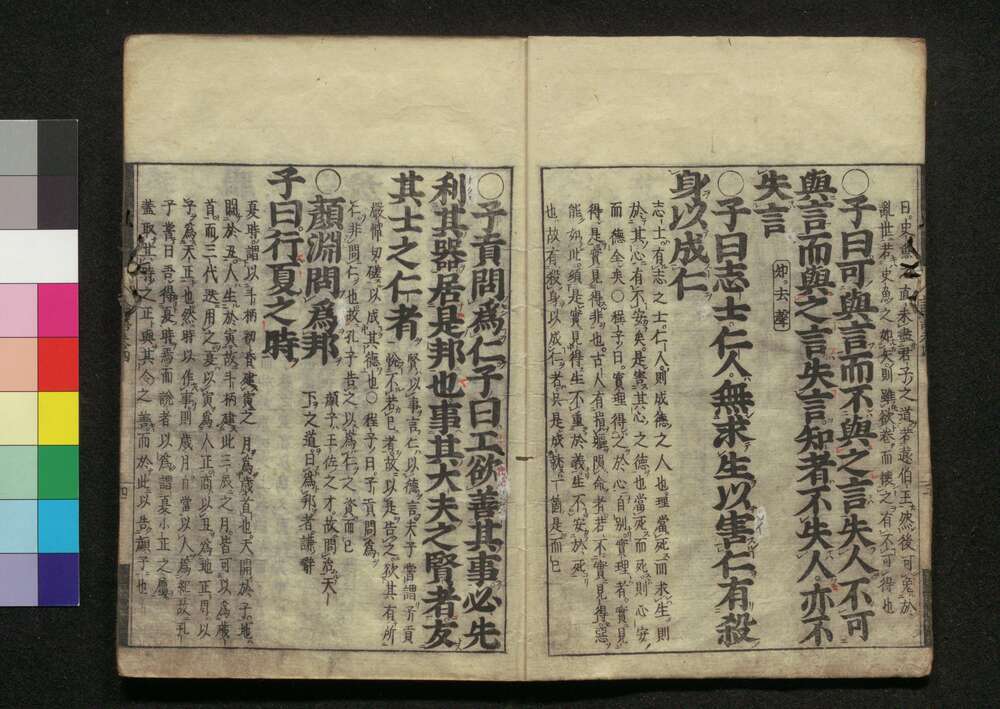 亂世若史魚之如矢則雖欲卷而懷之有不可得也
○子曰可與言而不與之言失人不可
與言而與之言失言知者不失人亦不
失言
知去聲
○子曰志士仁人無求生以害仁有殺
身以成仁
志士有志之士仁人則成德之人也理當死而求生則
於其心有不安矣是害其心之德也當死而死則心安
而德全矣○程子曰實理得之於心自別實理者實見
得是實見得非也古人有捐軀隕命者若不實見得惡
能如此須是實見得生不重於義生不安於死
也故有殺身以成仁者只是成就一箇是而已
○子貢問爲仁子曰工欲善其事必先
利其器居是邦也事其大夫之賢者友
其士之仁者
賢以事言仁以德言夫子嘗謂子貢
悅不若己者故以是告之欲其有所
嚴憚切磋以成其德也○程子曰子貢問爲
仁非問仁也故孔子告之以爲仁之資而已
○顏淵問爲邦
顏子王佐之才故問治天
下之道曰爲邦者謙辭
子曰行夏之時
夏時謂以斗柄初昏建寅之月爲歲首也天開於子地
闢於丑人生於寅故斗柄建此三辰之月皆可以爲歲
首而三代迭用之夏以寅爲人正商以丑爲地正周以
子爲天正也然時以作事則歲月自當以人爲紀故孔
子嘗曰吾得夏時焉而說者以爲謂夏小正之屬
蓋取其時之正與其令之善而於此又以告顏子也